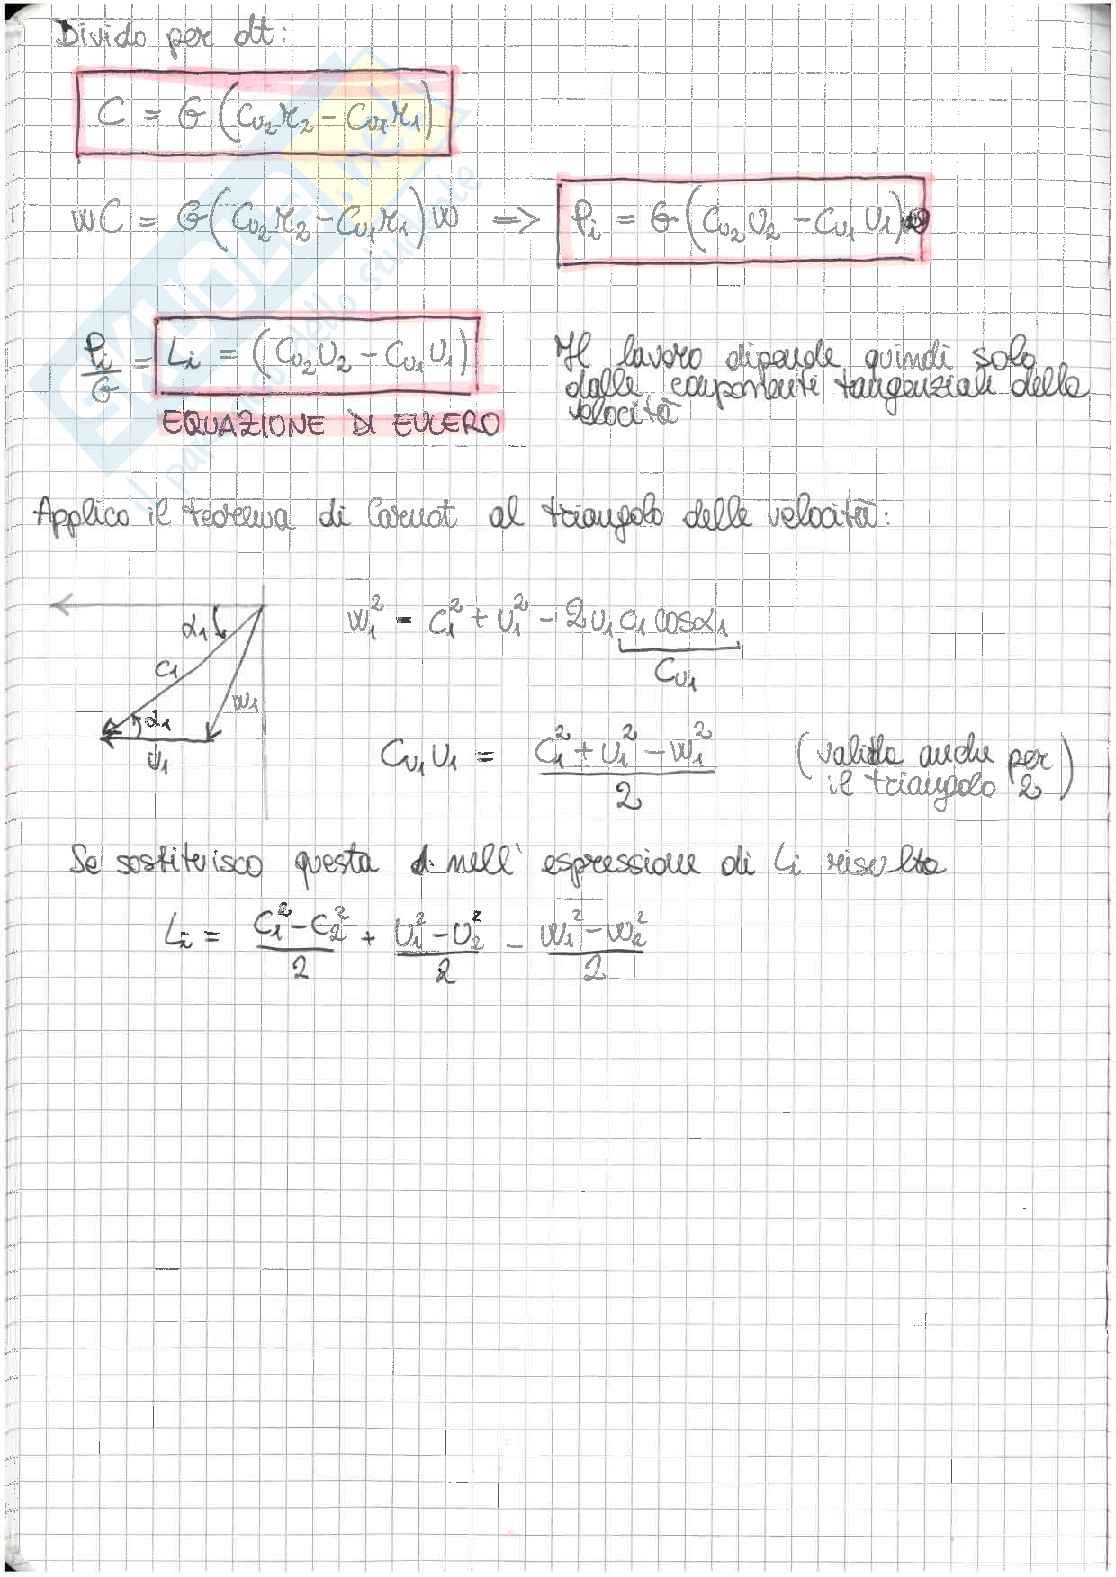 Divido per dt:
C = G (Cu2 r2 - Cu1 r1)
ωC = G (Cu2 r2 - Cu1 r1) ω => Pi = G (Cu2 U2 - Cu1 U1)
Pi/G = Li = (Cu2 U2 - Cu1 U1)
EQUAZIONE DI EULERO
Il lavoro dipende quindi solo
dalle componenti tangenziali della
velocità
Applico il teorema di Carnot al triangolo delle velocità:
α1
C1
w1
α1
U1
w1² = C1² + U1² - 2 U1 C1 cosα1
Cu1
Cu1 U1 = (C1² + U1² - w1²)/2
(valida anche per
il triangolo 2)
Se sostituisco questa nell' espressione di Li risulta
Li = (C1² - C2²)/2 + (U1² - U2²)/2 - (w1² - w2²)/2